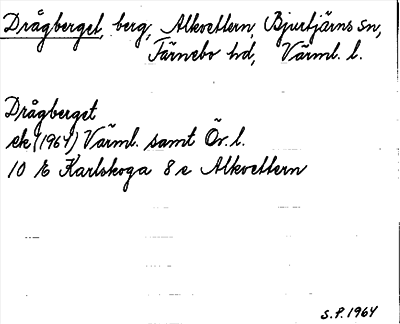 Drågberget, berg, Alkvettern, Bjurtjärns sn,
Färnebo hd, Värml. l.
Drågberget
ek (1964) Värml. samt Ör. l.
10 E Karlskoga 8 e Alkvettern
S.P. 1964